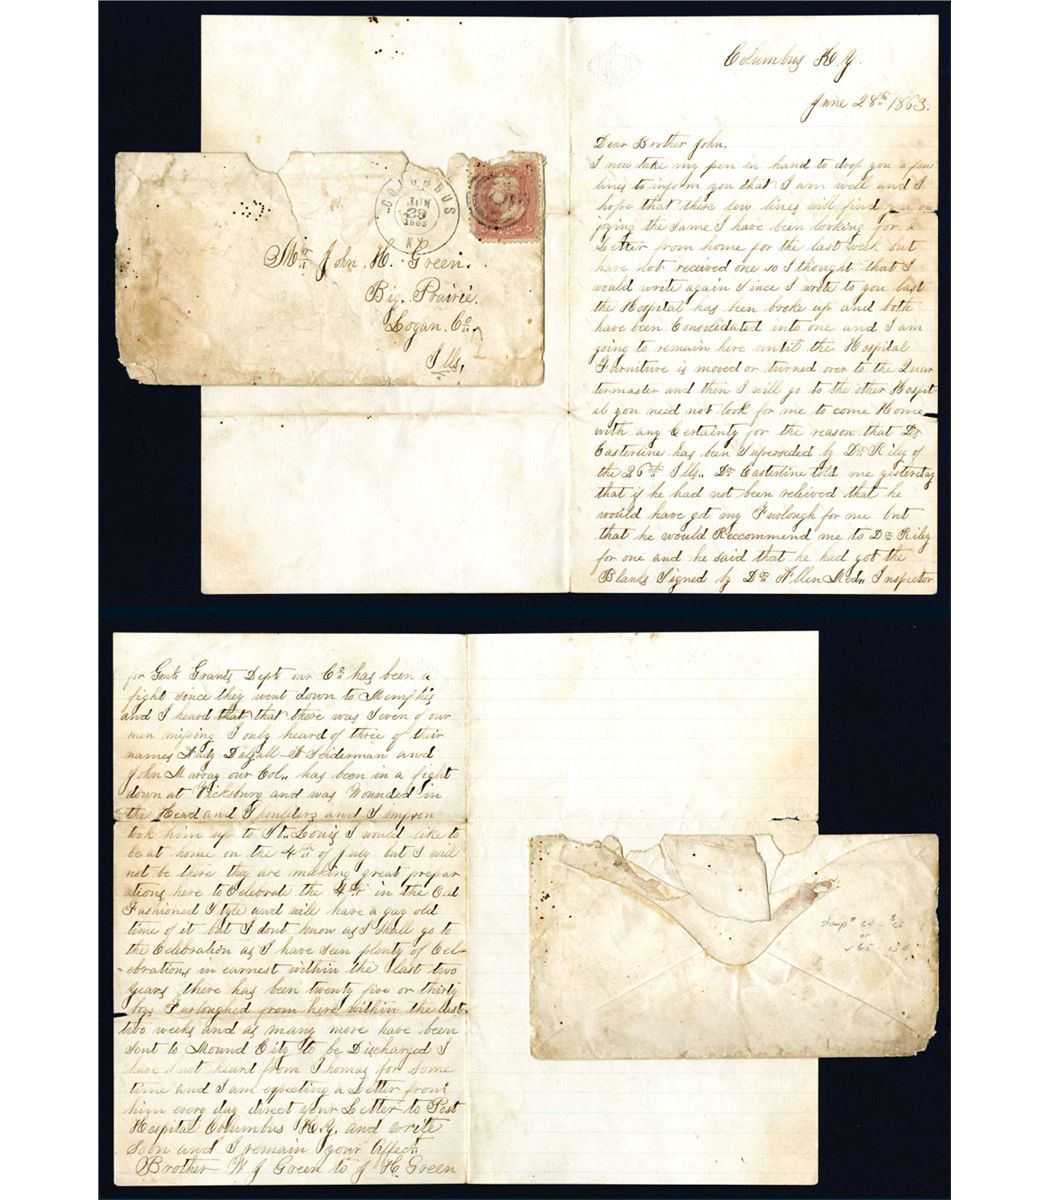 Columbus K.Y.
June 28th 1863.
Dear Brother John.
I now take my pen in hand to drop you a few
lines to inform you that I am well and I
hope that these few lines will find you en
joying the same I have been looking for a
Letter from home for the last week but
have not received one so I thought that I
would write again Since I wrote to you last
the Hospital has been broke up and both
have been Consolidated into one and I am
going to remain here until the Hospital
Furniture is moved or turned over to the Quar
termaster and then I will go to the other Hospit
al you need not look for me to come Home
with any Certainty for the reason that Dr
Casterline has been Superseded by Dr. Riley of
the 26th Ills.. Dr Casterline told me yesterday
that if he had not been releived that he
would have got my Furlough for me but
that he would Reccommend me to Dr. Riley
for one and he said that he had got the
Blanks Signed by Dr. Allen Med.. Inspector
COLUMBUS
JUN
29
1863
KY
Mr John. H. Green.
Big. Prairie.
Logan. Co.
Ills.
for Genl. Grants Dept. our Co has been a
fight since they went down to Memphis
and I heard that that there was Seven of our
men missing I only heard of three of their
names Dalzall Seiderman and
John Murray our Col.. has been in a fight
down at Vicksburg and was Wounded in
the Head and Shoulders and
took him up to St.. Louis I would like to
be at home on the 4th of July but I will
not be there they are making great prepar
ations here to Celebrate the 4th in the Old
Fashioned Style and will have a gay old
time of it but I dont know as I shall go to
the Celebration as I have seen plenty of Cel-
ebrations in earnest within the last two
years there has been twenty five or thirty
boys Furloughed from here within the last
two weeks and as many more have been
Sent to Mound City to be Discharged I
have not heart from Thomas for some
time and I am expecting a Letter from
him every day direct your Letter to Post
Hospital Columbus K.Y. and write
Soon and I remain your Affect.
Brother W J Green to J H Green
stamp # 64
or
65